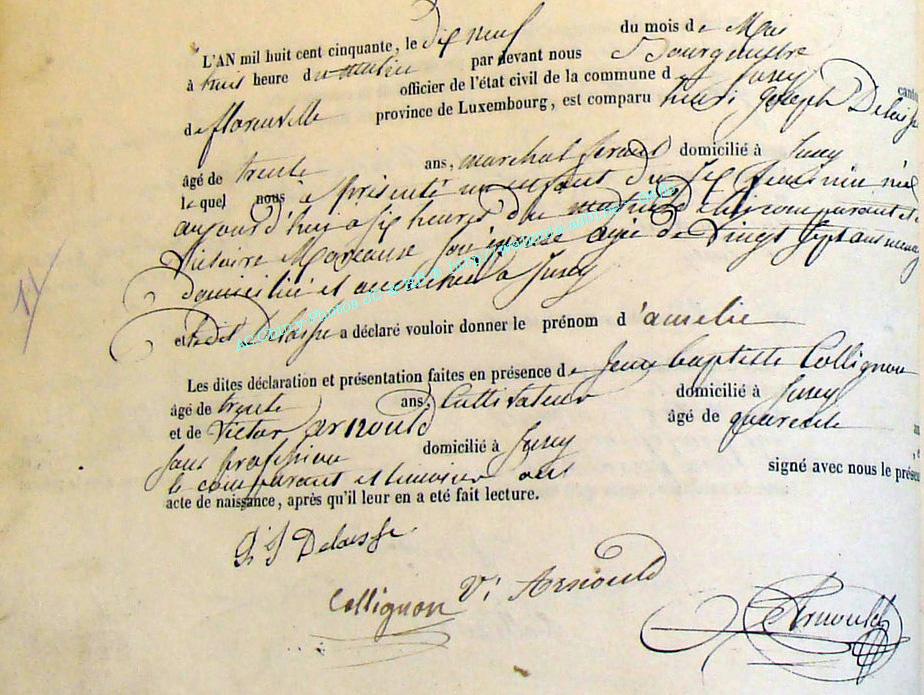 L'AN mil huit cent cinquante, le dix neuf du mois de Mai
à trois heure du matin par devant nous Bourgmestre
officier de l'état civil de la commune d Jusey canto
de florenville province de Luxembourg, est comparu henri Joseph Delaisse
âgé de trente ans, marechal ferant domicilié à Jusey
le quel nous a présenté un enfant du sexe feminin née
aujourd'hui a six heures du matin de lui comparant et
Victoire Marcause son épouse agée de Vingt sept ans
domicilié et accouchée à Jusey
et le dit Delaisse a déclaré vouloir donner le prénom d 'amelie
Les dites déclaration et présentation faites en présence de Jean baptiste Collignon
âgé de trente ans, Cultivateur domicilié à Jusey
et de Victor Arnould âgé de quarente an
sans profession domicilié à Jusey , e
le comparant et temoins ont signé avec nous le présen
acte de naissance, après qu'il leur en a eté fait lecture.
h J Delaisse
Collignon Vi Arnould
Arnould
11